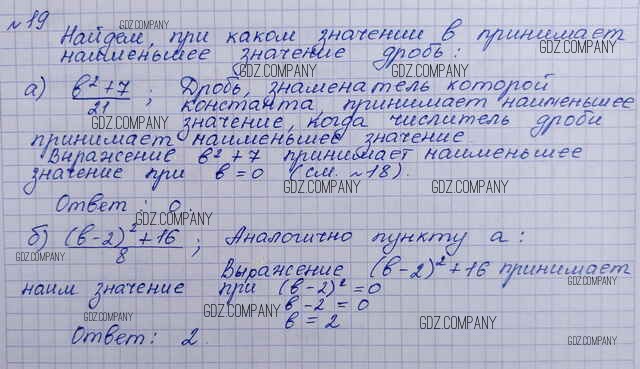 №19
Найдем, при каком значении b принимает
наименьшее значение дробь:
GDZ.COMPANY GDZ.COMPANY
GDZ.COMPANY GDZ.COMPANY
а) (b²+7)/21; Дробь, знаменатель которой
константа, принимает наименьшее
GDZ.COMPANY значение, когда числитель дроби GDZ.COMPANY
принимает наименьшее значение
Выражение b²+7 принимает наименьшее
значение при b=0 (см. №18).
GDZ.COMPANY GDZ.COMPANY
Ответ: 0.
GDZ.COMPANY
б) ((b-2)²+16)/8; Аналогично пункту а:
GDZ.COMPANY GDZ.COMPANY
Выражение (b-2)²+16 принимает
наим значение при (b-2)²=0
GDZ.COMPANY
b-2=0
GDZ.COMPANY
b=2
GDZ.COMPANY
Ответ: 2.
GDZ.COMPANY